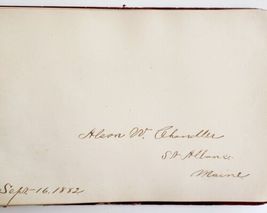 Alson W. Chandler
St Albans.
Maine
Sept. 16, 1882